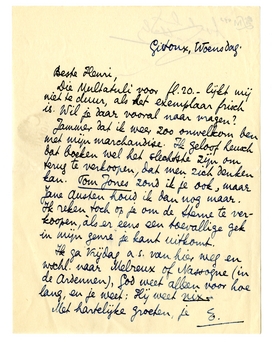 Gistoux, Woensdag.
Beste Henri,
Die Multatuli voor fl. 20.- lijkt mij
niet te duur, als het exemplaar frisch
is. Wil je daar vooral naar vragen?
Jammer dat ik weer zoo onwelkom ben
met mijn marchandise. Ik geloof heusch
dat boeken wel het slechtste zijn om
terug te verkoopen, dat men zich denken
kan. Tom Jones zond ik je ook, maar
Jane Austen houd ik dan nog maar.
Ik reken toch op je om de Sterne te ver-
koopen, als er eens een toevallige gek
in mijn genre je kant uitkomt.
Ik ga Vrijdag a.s. van hier weg en
wschl. naar Melreux of Nassogne (in
de Ardennen), God weet alleen voor hoe
lang, en je weet: Hij weet nix.
Met hartelijke groeten, je E.